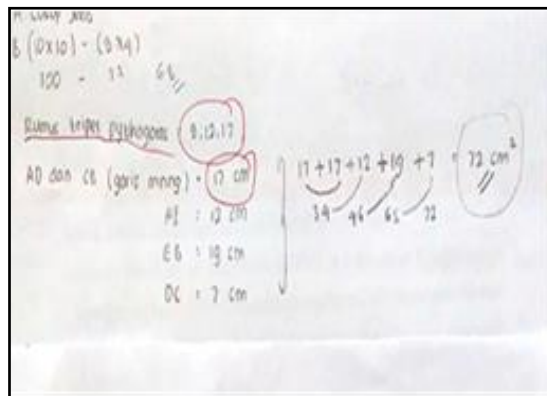 B (10x10) - (8x4)
100 - 32 68
Rumus tripel pythagoras = 8,12,17
AD dan CB (garis miring) = 17 cm
AE = 12 cm
EB = 19 cm
DC = 7 cm
17 + 17 + 12 + 19 + 7 = 72 cm²
34 46 65 72